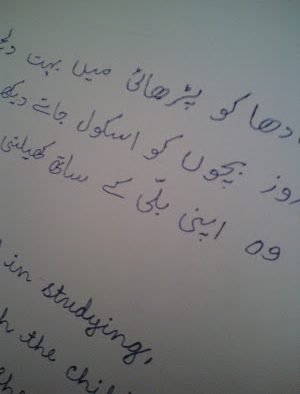 دھا کو پڑھائی میں بہت
روز بچوں کو اسکول جاتے
وہ اپنی بلّی کے ساتھ کھیلتی
in studying,
the